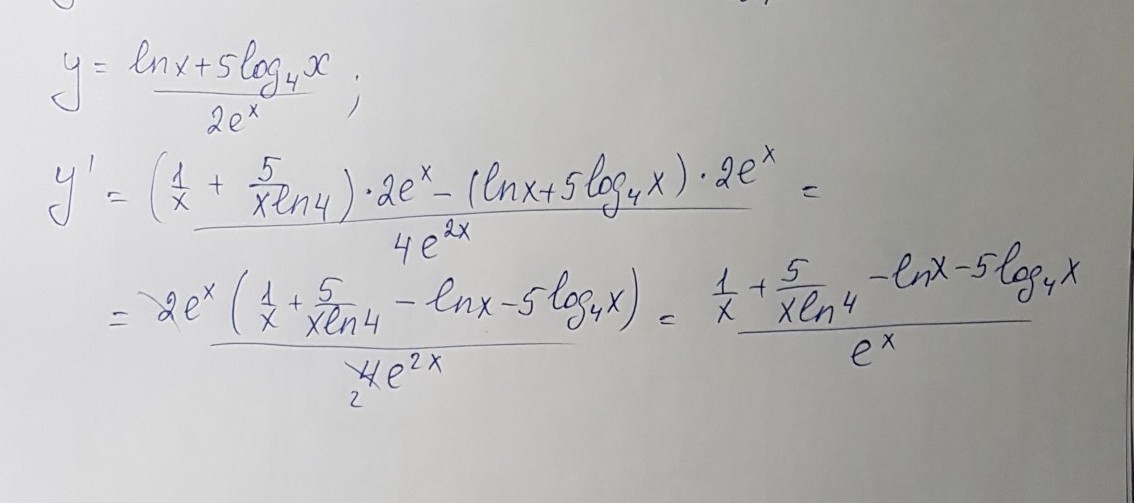 y = (ln x + 5 log₄ x) / (2eˣ) ;
y' = ((1/x + 5/(x ln 4)) · 2eˣ − (ln x + 5 log₄ x) · 2eˣ) / (4e²ˣ) =
= 2eˣ (1/x + 5/(x ln 4) − ln x − 5 log₄ x) / (4e²ˣ) = (1/x + 5/(x ln 4) − ln x − 5 log₄ x) / eˣ
2